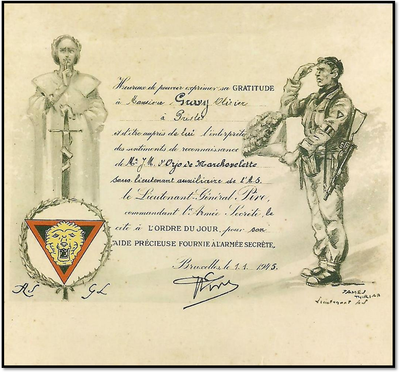 Heureux de pouvoir exprimer sa GRATITUDE
à Monsieur Gravy Olivier
à Presles
et d'être auprès de lui l'interprète
des sentiments de reconnaissance
de Mr J.M. d'Oyo de Marchovelette
sous-lieutenant auxiliaire de l'A.S.
le Lieutenant-Général Pire,
commandant l'Armée Secrète, le
cite à L'ORDRE DU JOUR, pour son
AIDE PRÉCIEUSE FOURNIE A L'ARMÉE SECRÈTE.
Bruxelles le 1.1.1945.
Pire
AS GL
JAMES
Lieutenant A.S